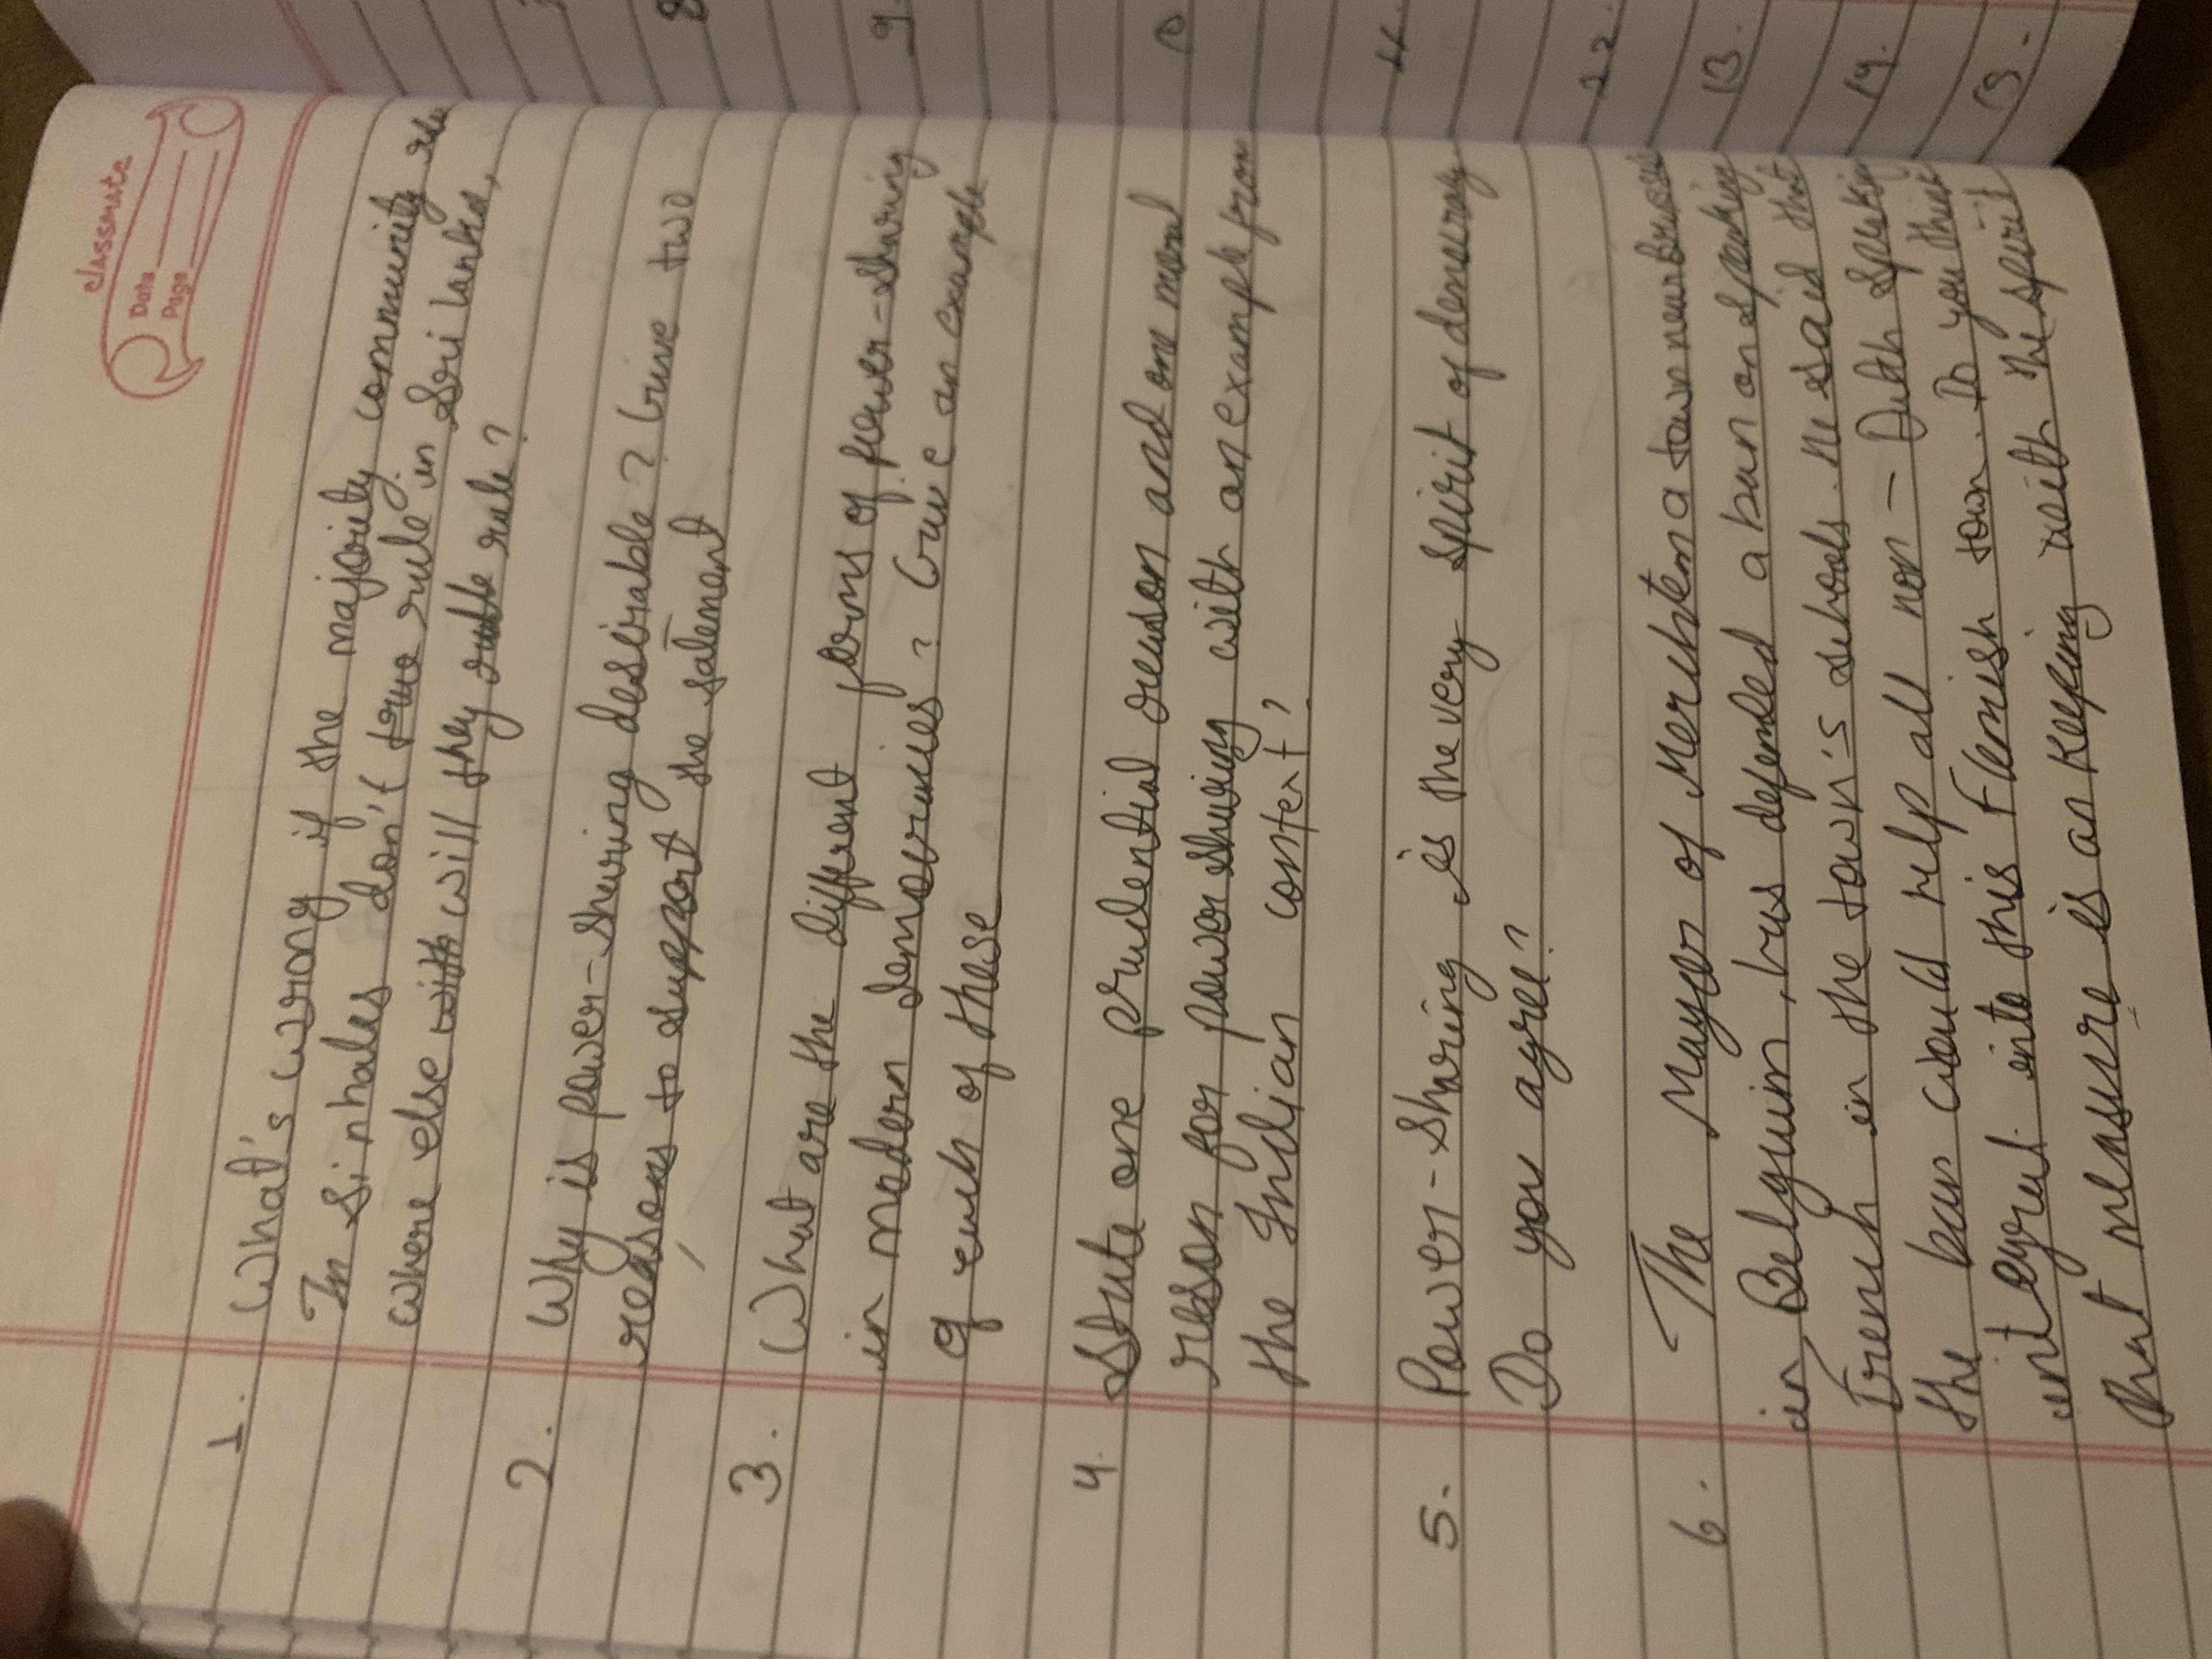 classmate
Date
Page
1. What's wrong if the majority community
In Sinhales don't true rule in Sri Lanka,
where else with will they rule?
2. Why is power-sharing desirable? Give two
reasons to support the satement
3. What are the different forms of power-sharing
in modern democracies? Give an example
of each of these
4. State one prudential reason and one moral
reason for power sharing with an example from
the Indian context?
5. Power-sharing is the very spirit of democracy
Do you agree?
6. The Mayor of Merchtem a town near Brussels
in Belguim, has defended a ban on speaking
French in the town's schools. He said that
the ban would help all non - Dutch speaking
integrat into this Flemish town. Do you think
that measure is an keeping with the spirit
8
9.
10
11.
12.
13.
14.
15.